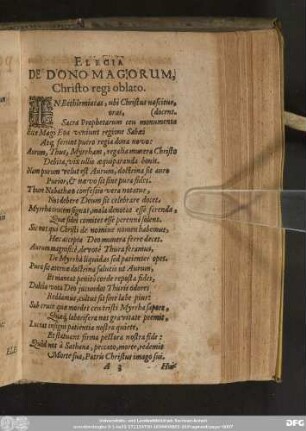 ELEGIA
DE DONO MAGORUM,
Christo regi oblato.
IN Bethlemiticas, ubi Christus nascitur,
oras, (docent.
Sacra Prophetarum ceu monumenta
Huc Magi Eoæ veniunt regione Sabæi
Atq; ferunt puero regia dona novo:
Aurum, Thus, Myrrham, regalia munera Christo
Debita, vix ullis æquiparanda bonis.
Nam purum velut est Aurum, doctrina sit auro
Purior, & nævo sit sine pura fides.
Thure
confessio vera notatur,
Nos debere Deum sic celebrare docet.
Myrrha crucem signat, mala denotat esse ferenda,
Quæ sibi comites esse perenne solent.
Sic nos qui Christi de nomine nomen habemus,
Hæc accepta Deo munera ferre decet.
Aurum magnificè, devotè Thura feramus,
De Myrrha liquidas sed patienter opes.
Pura sit æternæ doctrina salutis ut Aurum,
Et maneat penitò corde reposta fides.
Dulcia vota Deo jucundos Thuris odores
Reddamus, cultus sit sine labe pius:
Sub cruce quæ mordet ceu tristi Myrrha sapore,
Quæq; laboriferæ nos gravitate premit,
Luctus insignis patientia nostra quiete,
Et statuent firma pectora nostra fide:
Quòd nos à Sathana, peccato, morte, redemit
Morte sua, Patris Christus imago sui.
A 3 Huic